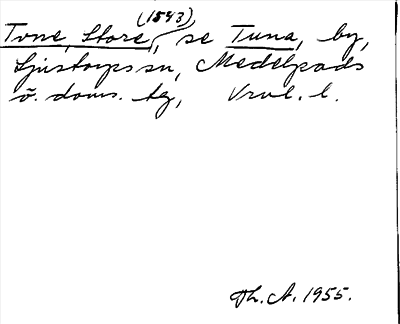 (1543)
Tvne, Store, se Tuna, by,
Ljustorps sn, Medelpads
ö. doms. tg, Vrnl. l.
Th. A. 1955.